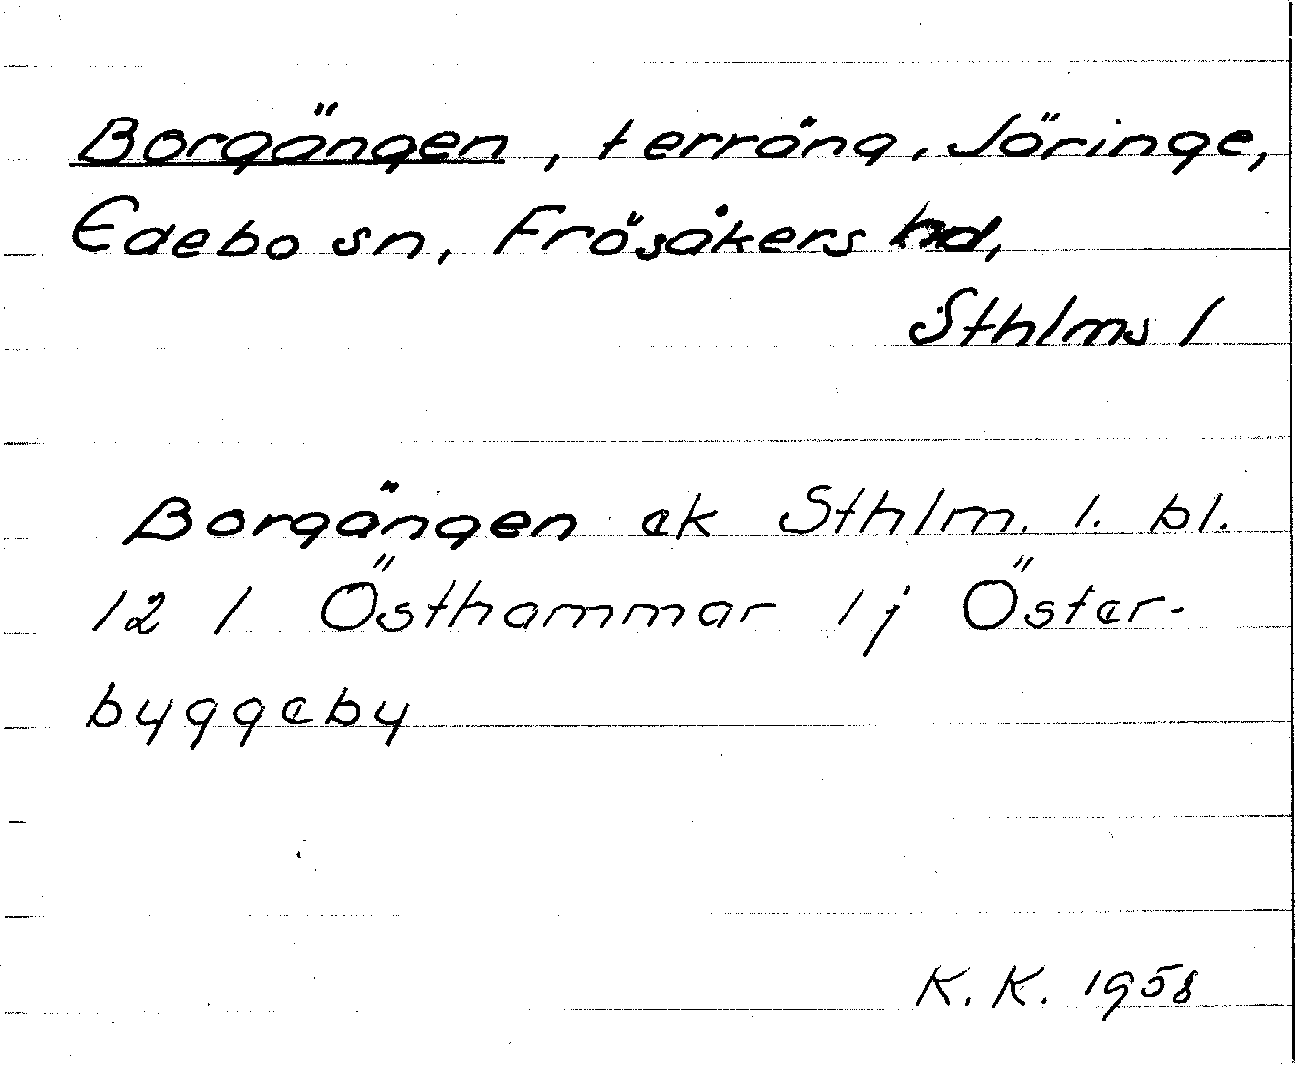 Borgängen, terräng, Söringe,
Edebo sn, Frösåkers hd,
Sthlms l
Borgängen ek Sthlm. l. bl.
12 l Östhammar 1j Öster-
byggeby
K. K. 1958